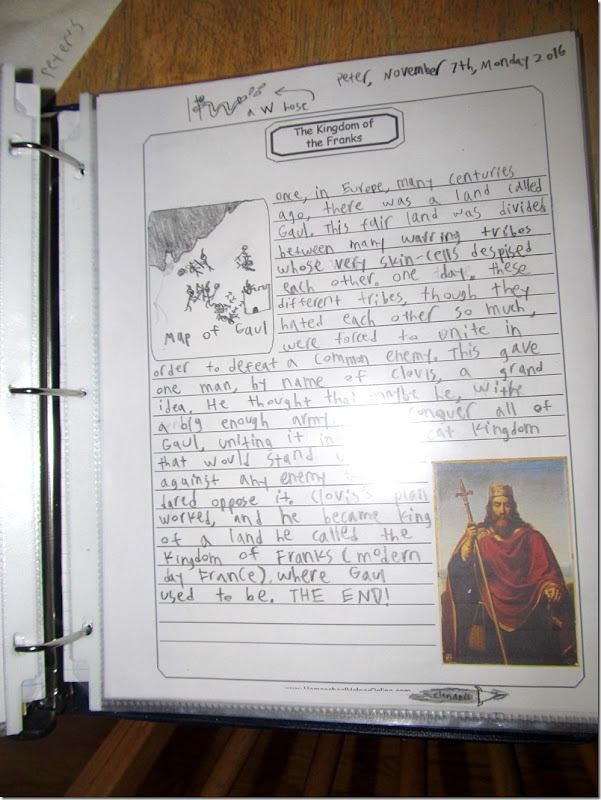 Peter's
Peter, November 7th, Monday 2016
a W hose
The Kingdom of
the Franks
once, in Europe, many centuries
ago, there was a land called
Gaul. This fair land was divided
between many warring tribes
whose very skin-cells despised
each other. one day, these
different tribes, though they
hated each other so much,
were forced to unite in
Map of Gaul
order to defeat a common enemy. This gave
one man, by name of clovis, a grand
idea. He thought that maybe he, withe
a big enough army, conquer all of
Gaul, uniting it in kingdom
that would stand
against any enemy
dared oppose it. Clovis's plan
worked, and he became king
of a land he called the
Kingdom of Franks (modern
day France), where Gaul
used to be. THE END!